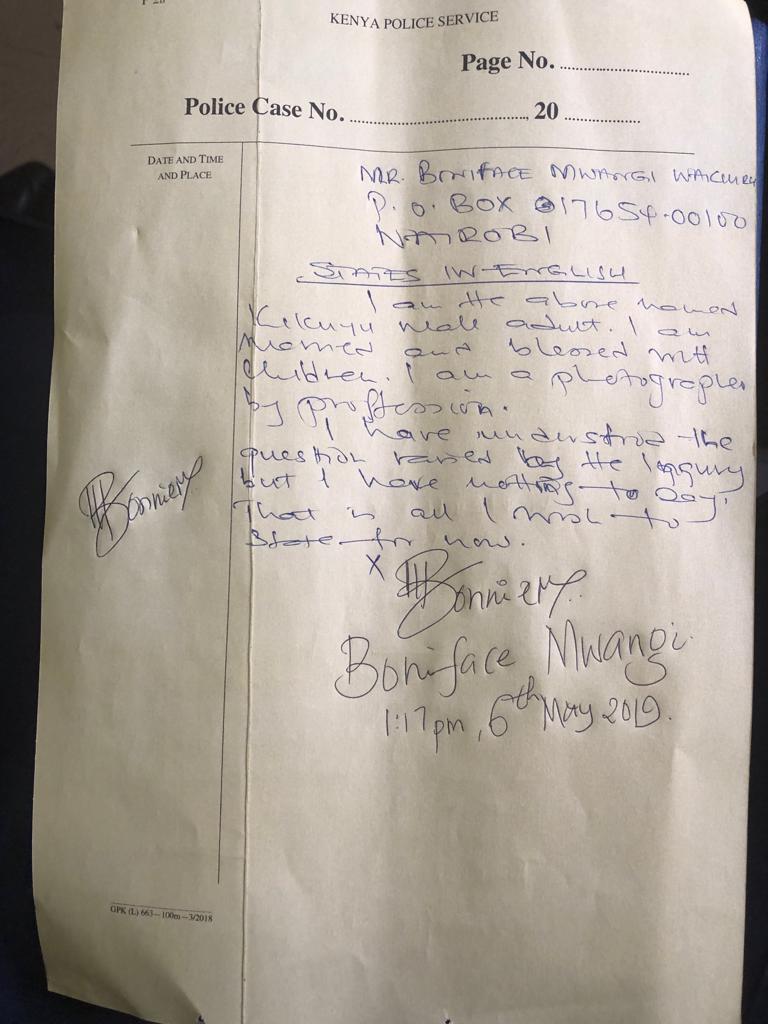 KENYA POLICE SERVICE
Page No. ..............................
Police Case No. .........................................., 20 ..................
DATE AND TIME
AND PLACE
MR. BONIFACE MWANGI
P. O. BOX 17654-00100
NAIROBI
STATES IN ENGLISH
I am the above named
Kikuyu male adult. I am
married and blessed with
children. I am a photographer
by proffession.
I have understood the
question raised by the Inquiry
but I have nothing to say.
That is all I wish to
state for now.
X Bonniem
Bonniem
Boniface Mwangi.
1:17pm, 6th May 2019.
GPK (L) 663—100m—3/2018